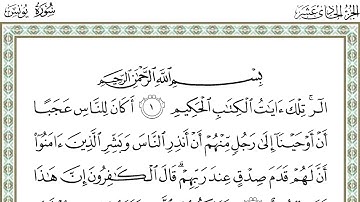 الجزء الحادي عشر
سورة يونس
بِسْمِ ٱللَّهِ ٱلرَّحْمَٰنِ ٱلرَّحِيمِ
الٓر ۚ تِلْكَ ءَايَٰتُ ٱلْكِتَٰبِ ٱلْحَكِيمِ ١ أَكَانَ لِلنَّاسِ عَجَبًا
أَنْ أَوْحَيْنَآ إِلَىٰ رَجُلٍ مِّنْهُمْ أَنْ أَنذِرِ ٱلنَّاسَ وَبَشِّرِ ٱلَّذِينَ ءَامَنُوٓا۟
أَنَّ لَهُمْ قَدَمَ صِدْقٍ عِندَ رَبِّهِمْ ۗ قَالَ ٱلْكَٰفِرُونَ إِنَّ هَٰذَا